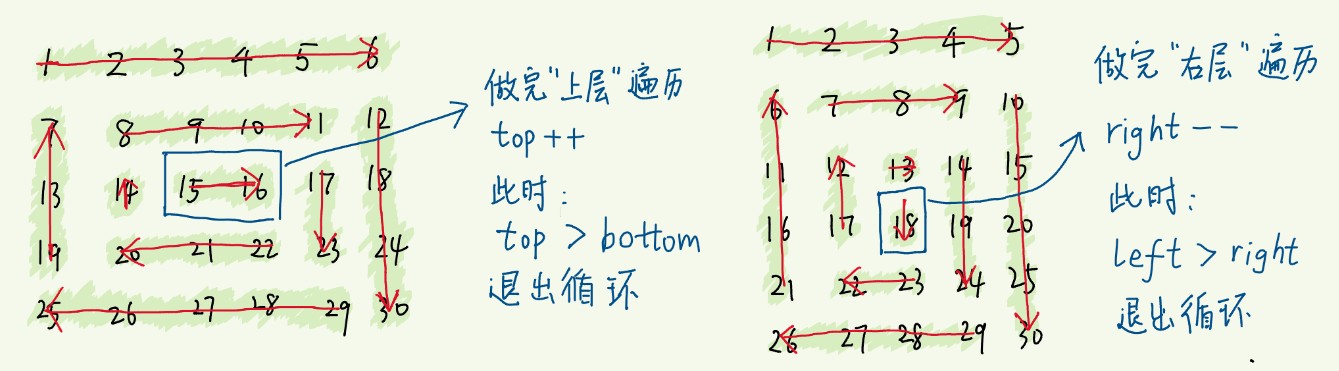 1 2 3 4 5 6
7 8 9 10 11 12
13 14 15 16 17 18
19 20 21 22 23 24
25 26 27 28 29 30
做完"上层"遍历
top ++
此时:
top > bottom
退出循环
1 2 3 4 5
6 7 8 9 10
11 12 13 14 15
16 17 18 19 20
21 22 23 24 25
26 27 28 29 30
做完"右层"遍历
right --
此时:
left > right
退出循环